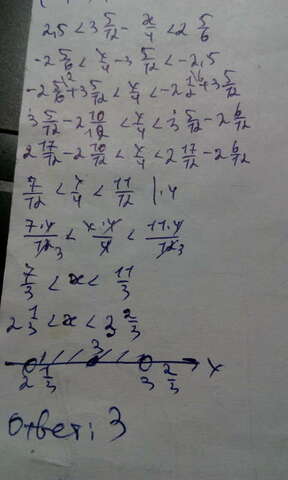 2,5 < 3 5/12 - x/4 < 2 5/6
-2 5/6 < x/4 - 3 5/12 < -2,5
-2 5/6 + 3 5/12 < x/4 < -2 1/2 + 3 5/12
3 5/12 - 2 10/12 < x/4 < 3 5/12 - 2 6/12
2 17/12 - 2 10/12 < x/4 < 2 17/12 - 2 6/12
7/12 < x/4 < 11/12 | · 4
7·4/12 3 < x·4/4 < 11·4/12 3
7/3 < x < 11/3
2 1/3 < x < 3 2/3
3
2 1/3 3 2/3 x
Ответ: 3